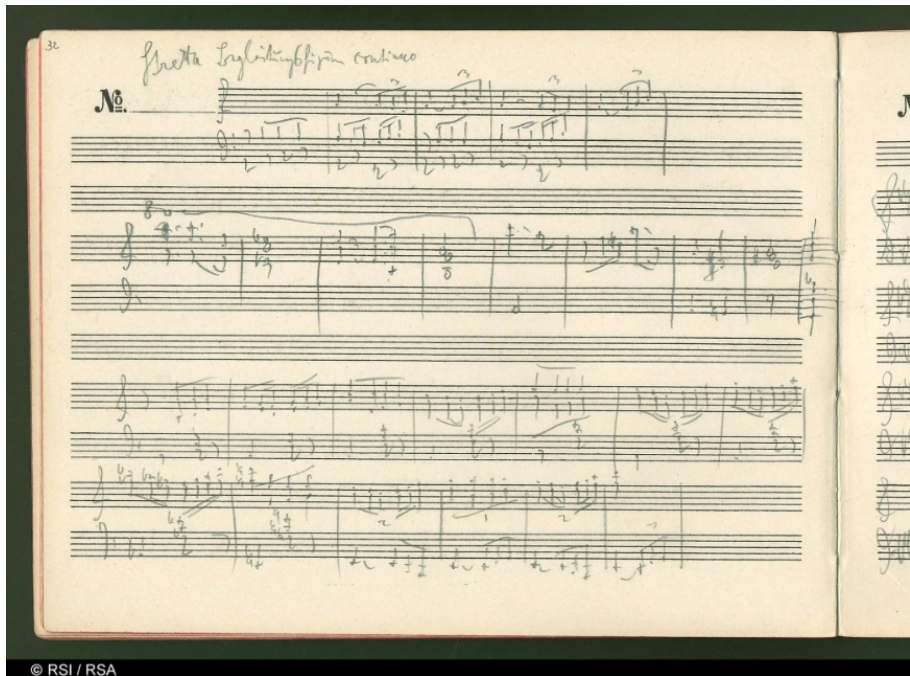 32
Stretta Begleitungsfigur continuo
№.
3 3 3 3
8
2 1 2
© RSI / RSA